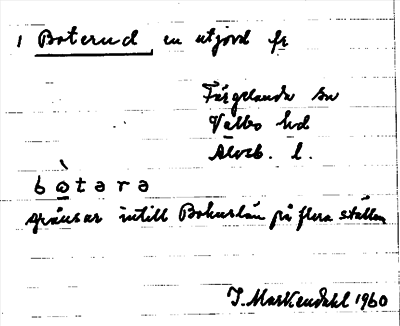 1 Boterud en utjord fr
Färgelanda sn
Valbo hd
Älvsb. l.
bò̲tərə
gränsar intill Bohuslän på flera ställen
I. Markendahl 1960